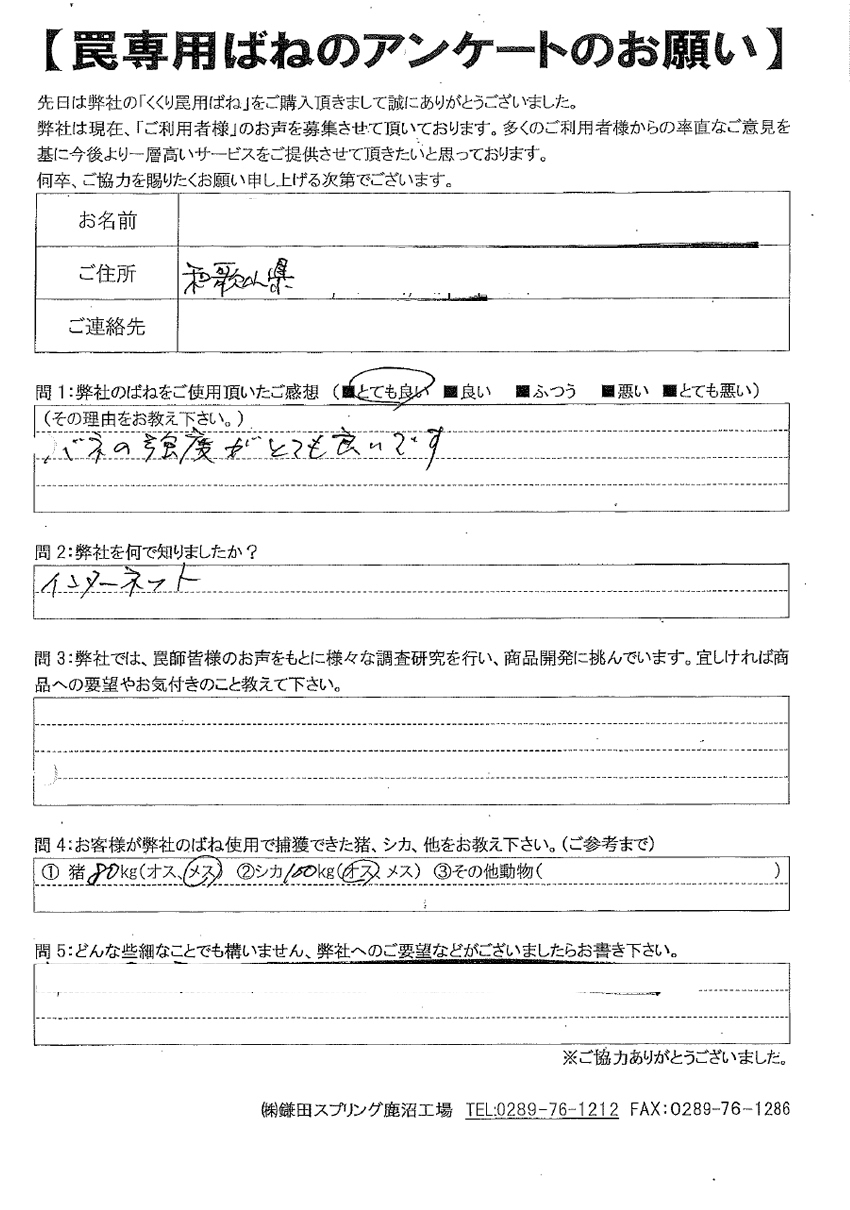 【罠専用ばねのアンケートのお願い】
先日は弊社の「くくり罠用ばね」をご購入頂きまして誠にありがとうございました。
弊社は現在、「ご利用者様」のお声を募集させて頂いております。多くのご利用者様からの率直なご意見を
基に今後より一層高いサービスをご提供させて頂きたいと思っております。
何卒、ご協力を賜りたくお願い申し上げる次第でございます。
お名前
ご住所 和歌山県
ご連絡先
問1:弊社のばねをご使用頂いたご感想 (■とても良い ■良い ■ふつう ■悪い ■とても悪い)
(その理由をお教え下さい。)
バネの強度がとても良いです
問2:弊社を何で知りましたか?
インターネット
問3:弊社では、罠師皆様のお声をもとに様々な調査研究を行い、商品開発に挑んでいます。宜しければ商
品への要望やお気付きのこと教えて下さい。
問4:お客様が弊社のばね使用で捕獲できた猪、シカ、他をお教え下さい。(ご参考まで)
① 猪 80kg(オス、メス) ②シカ100kg(オス、メス) ③その他動物( )
問5:どんな些細なことでも構いません、弊社へのご要望などがございましたらお書き下さい。
※ご協力ありがとうございました。
㈱鎌田スプリング鹿沼工場 TEL:0289-76-1212 FAX:0289-76-1286